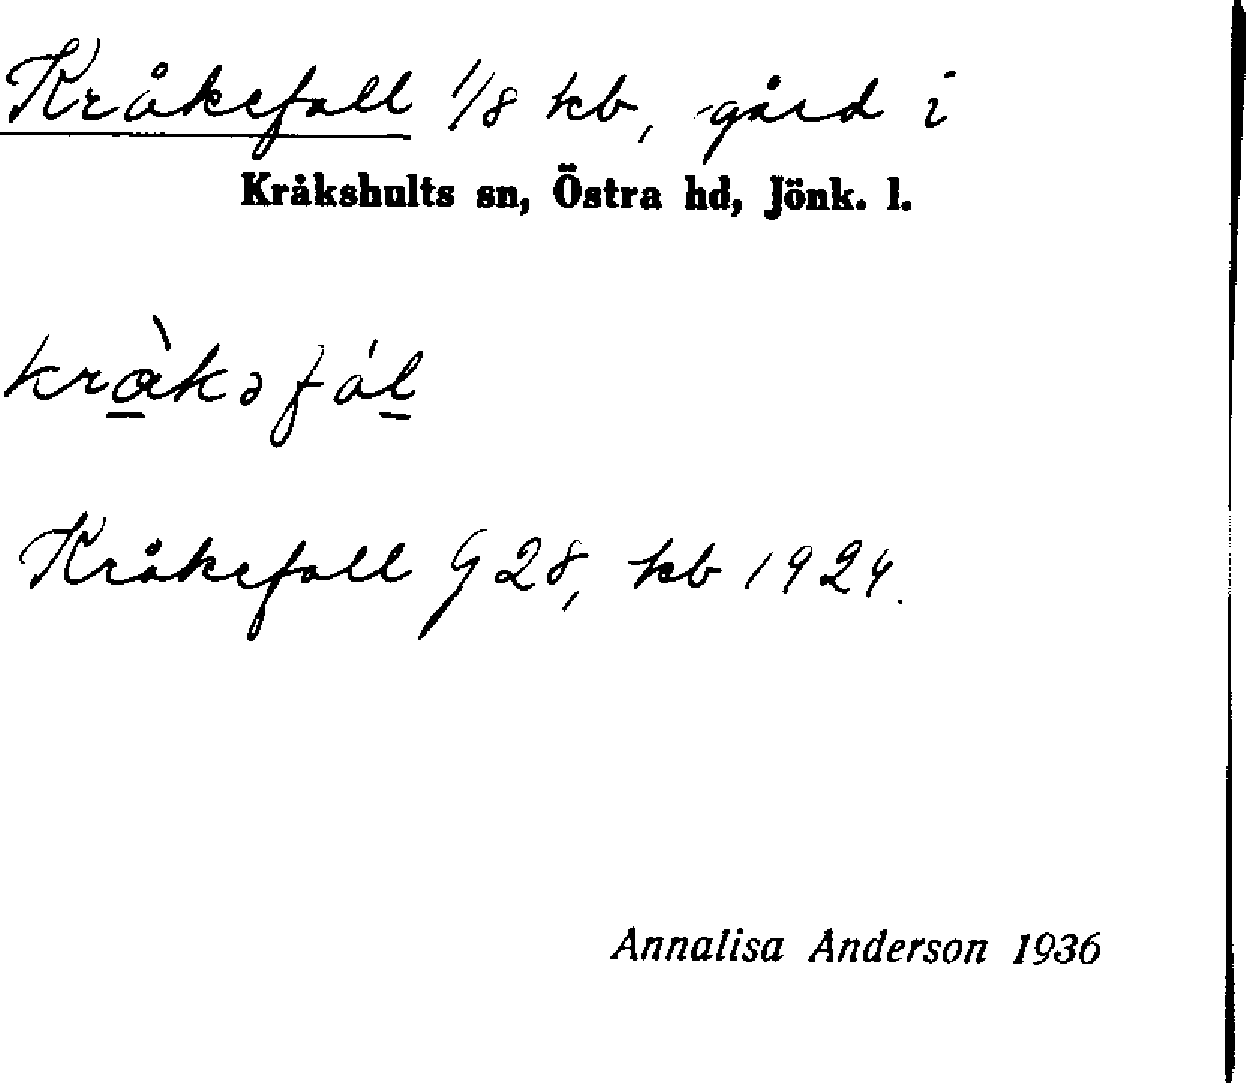 Kråkefall 1/8 kb, gård i
Kråkshults sn, Östra hd, Jönk. l.
kràkəfál
Kråkefall G 28, kb 1924.
Annalisa Anderson 1936